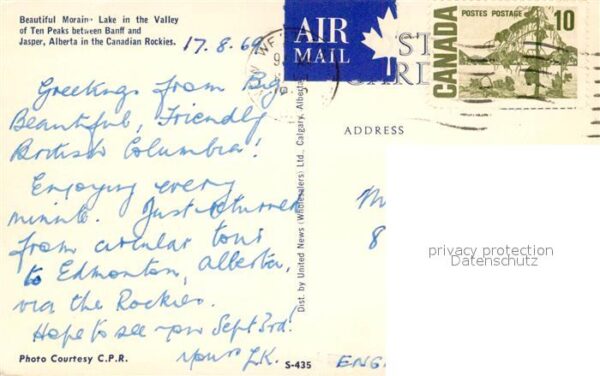 Beautiful Moraine Lake in the Valley
of Ten Peaks between Banff and
Jasper, Alberta in the Canadian Rockies.
17.8.69
Greetings from Big
Beautiful, Friendly
British Columbia!
Enjoying every
minute. Just returned
from circular tour
to Edmonton, Alberta,
via the Rockies.
Hope to see you Sept 3rd!
Yours L.K.
Photo Courtesy C.P.R.
S-435
Dist. by United News (Wholesalers) Ltd., Calgary, Alberta
AIR
MAIL
CANADA
POSTES POSTAGE
10
ADDRESS
8
privacy protection
Datenschutz
ENG